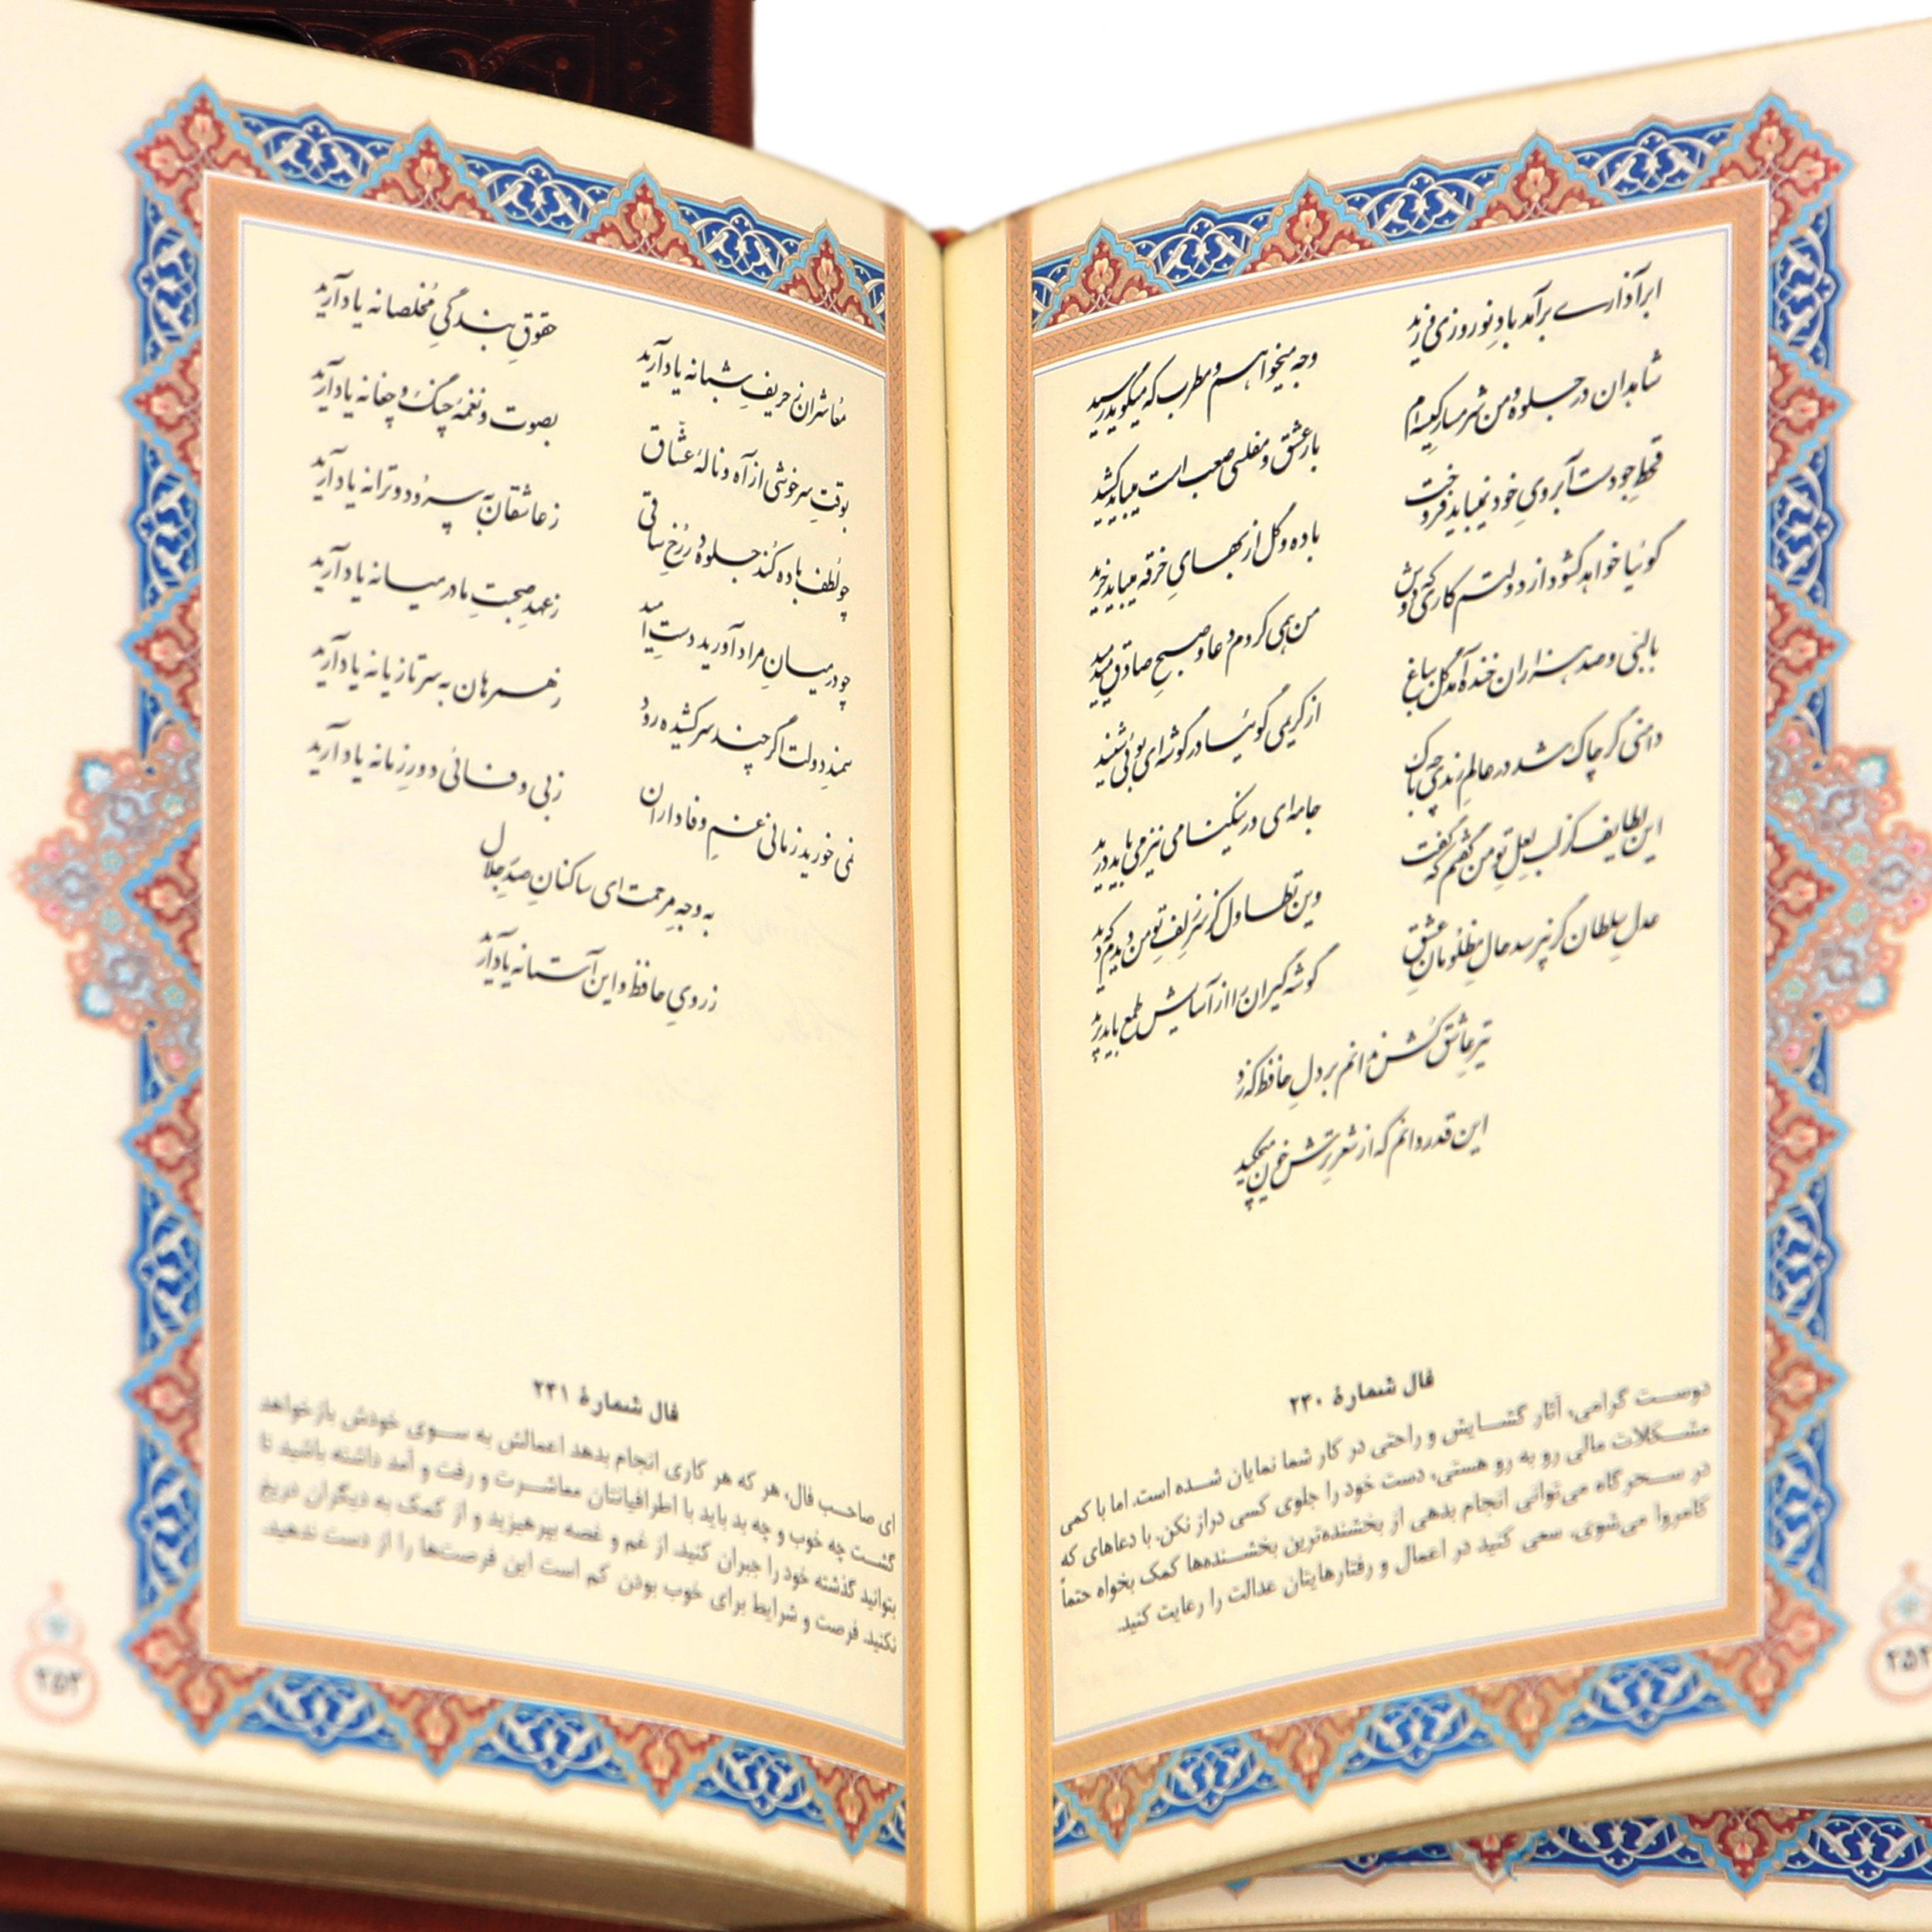 ابر آذاری برآمد باد نوروزی وزید
وجه میخواهم و مطرب که میگوید رسید
شاهدان در جلوه و من شرمسار کیسه‌ام
بار عشق و مفلسی صعب است میباید کشید
قحط جود است آبروی خود نمیباید فروخت
باده و گل از بهای خرقه میباید خرید
گوئیا خواهد گشود از دولتم کاری که دوش
من همی کردم دعا و صبح صادق میدمید
با لبی و صد هزاران خنده آمد گل بباغ
از کریمی گوئیا در گوشه‌ای بوئی شنید
دامنی گر چاک شد در عالم رندی چه باک
جامه‌ای در نیکنامی نیز می باید درید
این لطایف کز لب لعل تو من گفتم که گفت
وین تطاول کز سر زلف تو من دیدم که دید
عدل سلطان گر نپرسد حال مظلومان عشق
گوشه گیران را از آسایش طمع باید برید
تیر عاشق کش ندانم بر دل حافظ که زد
این قدر دانم که از شعر ترش خون میچکید
فال شمارهٔ ۲۴۰
دوست گرامی، آثار گشایش و راحتی در کار شما نمایان شده است. اما با کمی
مشکلات مالی رو به رو هستی، دست خود را جلوی کسی دراز نکن. با دعاهای که
در سحرگاه می‌توانی انجام بدهی از بخشنده‌ترین بخشنده‌ها کمک بخواه حتماً
کامروا می‌شوی. سعی کنید در اعمال و رفتارهایتان عدالت را رعایت کنید.
۲۵۲
معاشران ز حریف شبانه یاد آرید
حقوق بندگی مخلصانه یاد آرید
بوقت سرخوشی از آه و نالهٔ عشّاق
بصوت و نغمهٔ چنگ و چغانه یاد آرید
چو لطف باده کند جلوه در رخ ساقی
ز عاشقان به سرود و ترانه یاد آرید
چو در میان مراد آورید دست امید
ز عهد صحبت ما در میانه یاد آرید
سمند دولت اگر چند سرکشیده رود
ز همرهان به سر تازیانه یاد آرید
نمی خورید زمانی غم وفاداران
ز بی وفائی دور زمانه یاد آرید
به وجه مرحمت ای ساکنان صدر جلال
ز روی حافظ و این آستانه یاد آرید
فال شمارهٔ ۲۴۱
ای صاحب فال، هر که هر کاری انجام بدهد اعمالش به سوی خودش بازخواهد
گشت چه خوب و چه بد باید با اطرافیانتان معاشرت و رفت و آمد داشته باشید تا
بتوانید گذشته خود را جبران کنید. از غم و غصه بپرهیزید و از کمک به دیگران دریغ
نکنید. فرصت و شرایط برای خوب بودن کم است این فرصت‌ها را از دست ندهید.
۲۵۳